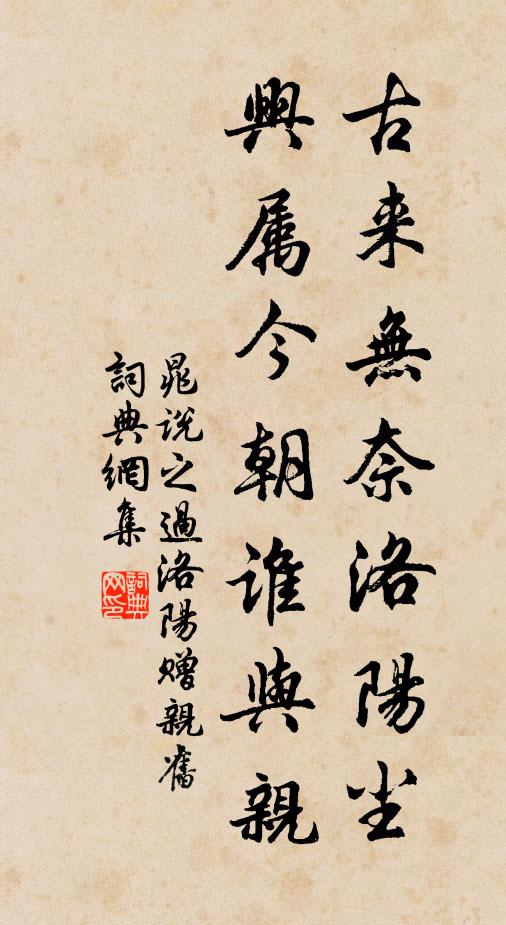 古来無奈洛陽尘
興属今朝誰與親
晁說之過洛陽贈親舊
詞典網集
詞典网印